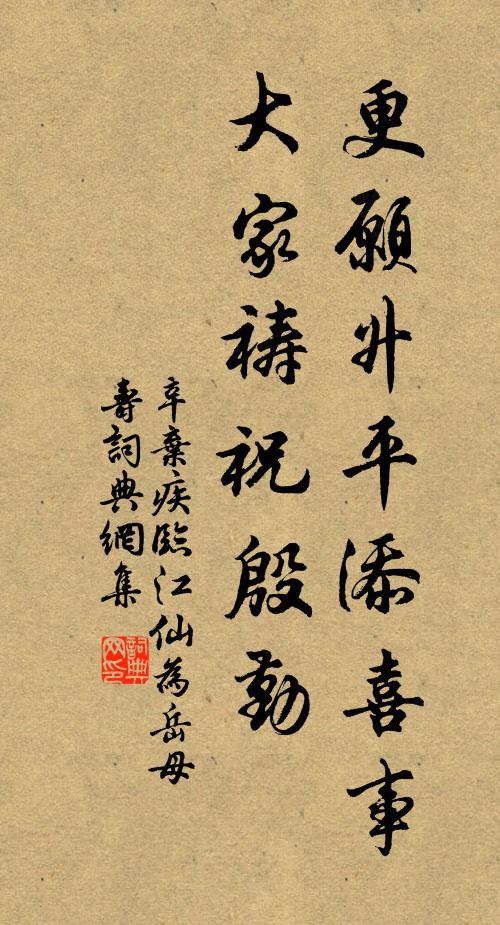 更願升平添喜事
大家禱祝殷勤
辛棄疾臨江仙為岳母
壽詞典網集
詞典网印